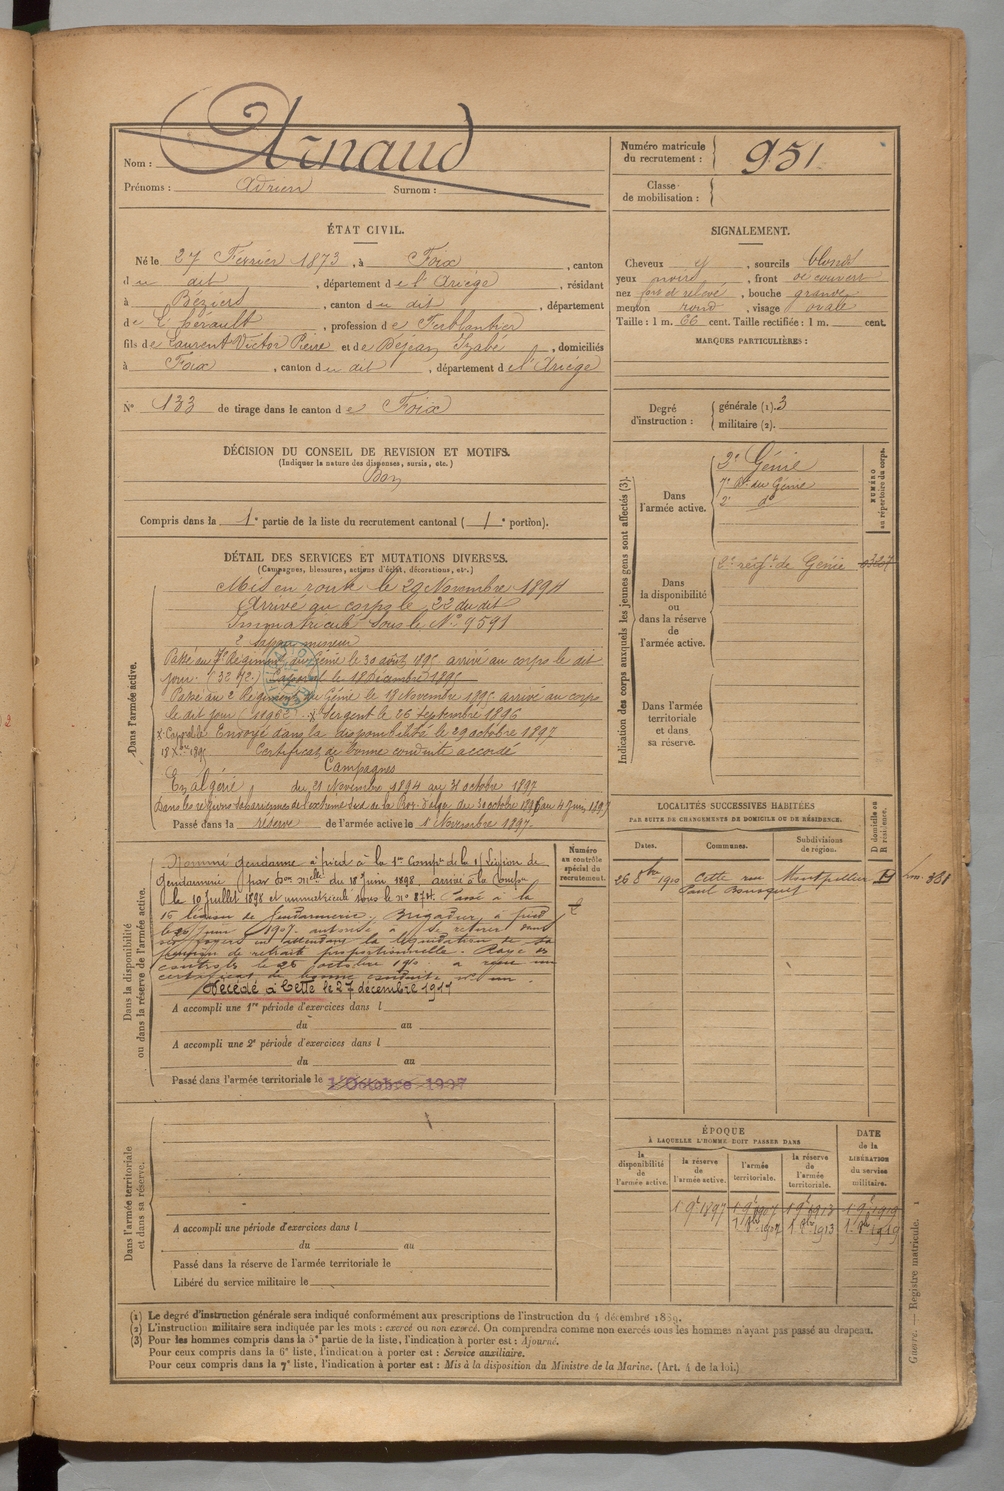 Nom : Arnaud
Prénoms : Adrien Surnom :
Numéro matricule du recrutement : 951
Classe de mobilisation :
ÉTAT CIVIL.
Né le 27 Février 1873, à Foix, canton
du dit, département de l'Ariège, résidant
à Béziers, canton du dit, département
de L'hérault, profession de Ferblantier
fils de Laurent Victor Pierre et de Izabé, domiciliés
à Foix, canton du dit, département de l'Ariège
N° 133 de tirage dans le canton de Foix
SIGNALEMENT.
Cheveux et, sourcils blonds
yeux noirs, front découvert
nez fort et relevé, bouche grande
menton rond, visage ovale
Taille : 1 m. 66 cent. Taille rectifiée : 1 m. cent.
MARQUES PARTICULIÈRES :
Degré d'instruction : générale (1). 3
militaire (2).
DÉCISION DU CONSEIL DE REVISION ET MOTIFS.
(Indiquer la nature des dispenses, sursis, etc.)
Bon
Compris dans la 1e partie de la liste du recrutement cantonal (1e portion).
DÉTAIL DES SERVICES ET MUTATIONS DIVERSES.
(Campagnes, blessures, actions d'éclat, décorations, etc.)
Dans l'armée active.
Mis en route le 20 Novembre 1894
Arrivé au corps le 22 du dit
Immatriculé sous le N° 9591
2e sapeur mineur
Passé au 7e Régiment du Génie le 30 août 1895 arrivé au corps le dit
jour. Caporal le 18 Décembre 1895
Passé au 2 Régiment du Génie le 18 Novembre 1895 arrivé au corps
le dit jour X Sergent le 26 Septembre 1896
X Caporal le Envoyé dans la disponibilité le 29 octobre 1897
18 Xbre 1895 Certificat de bonne conduite accordé
Campagnes
En algérie, du 21 Novembre 1894 au 31 octobre 1897
Dans les régions sahariennes de l'extrême sud de la Prov. d'alger du 30 octobre 1896 au 4 Juin 1897
Passé dans la réserve de l'armée active le 1 Novembre 1897.
Indication des corps auxquels les jeunes gens sont affectés (3).
NUMÉRO au répertoire du corps.
Dans l'armée active.
2e Génie
7e Rt du Génie
2e do
Dans la disponibilité ou dans la réserve de l'armée active.
2e régt de Génie
Dans l'armée territoriale et dans sa réserve.
LOCALITÉS SUCCESSIVES HABITÉES
PAR SUITE DE CHANGEMENTS DE DOMICILE OU DE RÉSIDENCE.
Dates. Communes. Subdivisions de région. D domicile ou R résidence.
26 8bre 1910 Cette rue Paul Bousquet Montpellier
Dans la disponibilité ou dans la réserve de l'armée active.
Numéro au contrôle spécial du recrutement.
Nommé Gendarme à pied à la 1re Compie de la Légion de
Gendarmerie (par Don Mlle du 18 Juin 1898, arrivé à la Compie
le 10 Juillet 1898 et immatriculé sous le n° 874. Passé à la
16 légion de Gendarmerie, Brigadier à pied
le 26 Juin 1907. autorisé à se retirer dans
ses foyers en attendant la liquidation de sa
pension de retraite proportionnelle. Rayé des
contrôles le 26 octobre 1910. a reçu un
certificat de bonne conduite
Décédé à Cette le 27 décembre 1911
A accompli une 1re période d'exercices dans l
du au
A accompli une 2e période d'exercices dans l
du au
Passé dans l'armée territoriale le 1 Octobre 1907
Dans l'armée territoriale et dans sa réserve.
A accompli une période d'exercices dans l
du au
Passé dans la réserve de l'armée territoriale le
Libéré du service militaire le
ÉPOQUE
À LAQUELLE L'HOMME DOIT PASSER DANS
DATE de la LIBÉRATION du service militaire.
la disponibilité de l'armée active.
la réserve de l'armée active.
l'armée territoriale.
la réserve de l'armée territoriale.
1 9e 1897 1 9e 1907 1 9e 1913 1 9e 1919
1 8bre 1907 1 8bre 1913 1 8bre 1919
(1) Le degré d'instruction générale sera indiqué conformément aux prescriptions de l'instruction du 4 décembre 1889.
(2) L'instruction militaire sera indiquée par les mots : exercé ou non exercé. On comprendra comme non exercés tous les hommes n'ayant pas passé au drapeau.
(3) Pour les hommes compris dans la 5e partie de la liste, l'indication à porter est : Ajourné.
Pour ceux compris dans la 6e liste, l'indication à porter est : Service auxiliaire.
Pour ceux compris dans la 7e liste, l'indication à porter est : Mis à la disposition du Ministre de la Marine. (Art. 4 de la loi.)
Guerre. — Registre matricule. 1